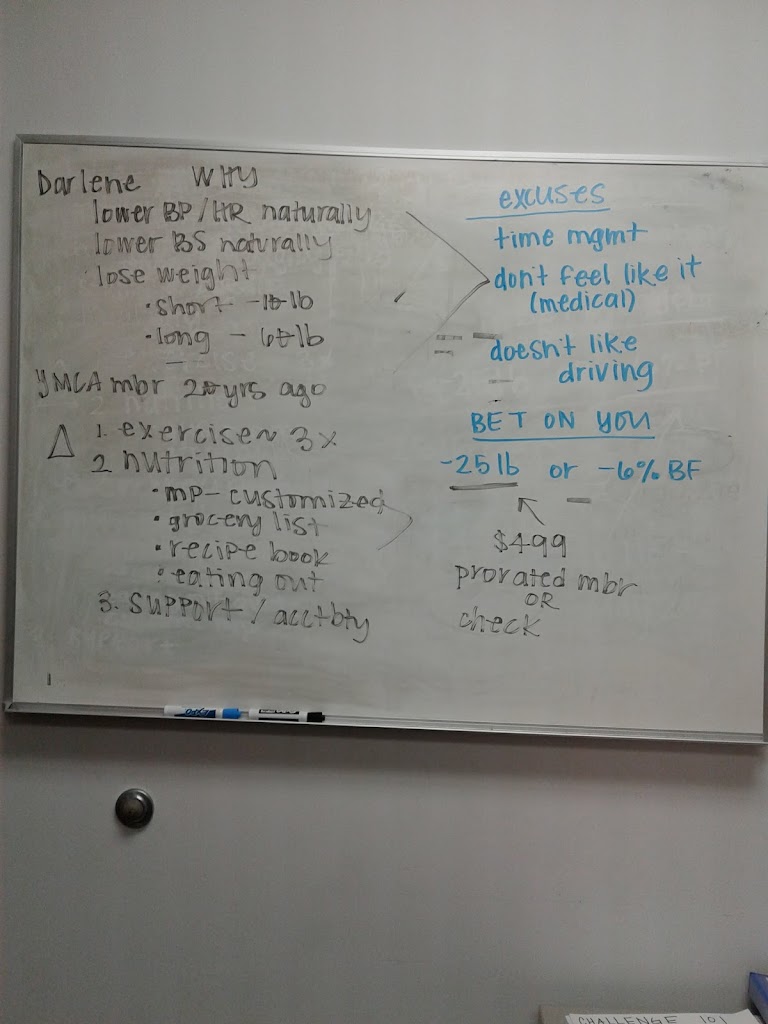 Darlene WHY
lower BP/HR naturally
lower BS naturally
lose weight
• short -10 lb
• long - 60 lb
YMCA mbr 20 yrs ago
Δ 1. exercise ~ 3x
2 nutrition
• mp - customized
• grocery list
• recipe book
• eating out
3. support/acctbty
excuses
time mgmt
don't feel like it
(medical)
doesn't like
driving
BET ON YOU
-25 lb or -6% BF
$499
prorated mbr
OR
check
EXPO
CHALLENGE 101